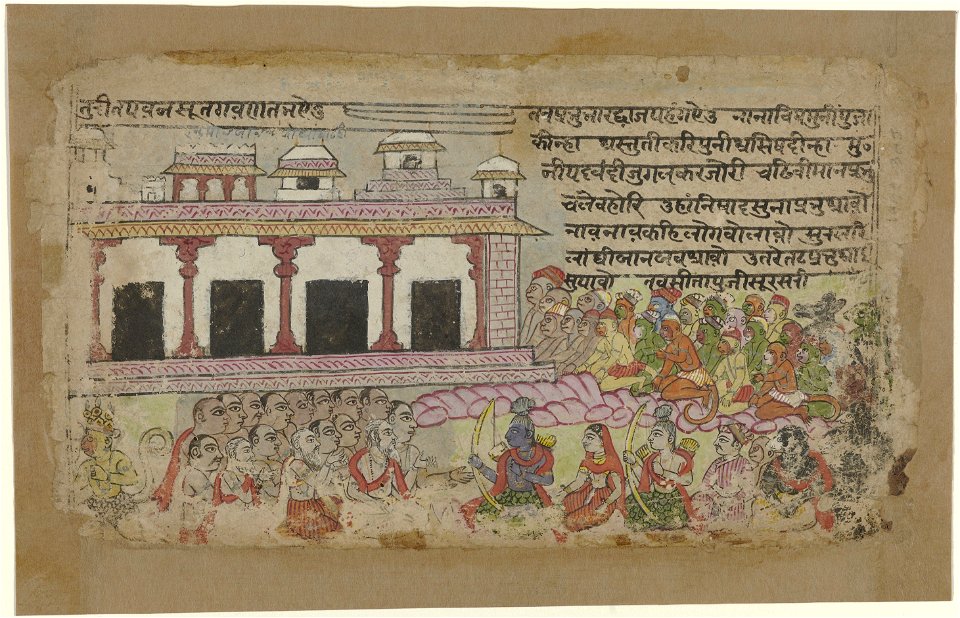 तुरीतपवनसूतगवणतभऐउ तबप्रभुभारद्वाजपहंगऐउ नानाविधमुनींपुजा
कीन्हा अस्तुतीकरिपुनीआसिषदीन्हा मु॰
नीपदवंदीजुगलकरजोरी चढिवीमानप्रभु
चलेवहोरि उहांनिषादसुनाप्रभुआवो
नावनावकहिलोगवोलावो सुरसरि
नांघीजानजवआवो उतरेतटप्रभु
सुपावो तवसीतापुजीसूरसरी